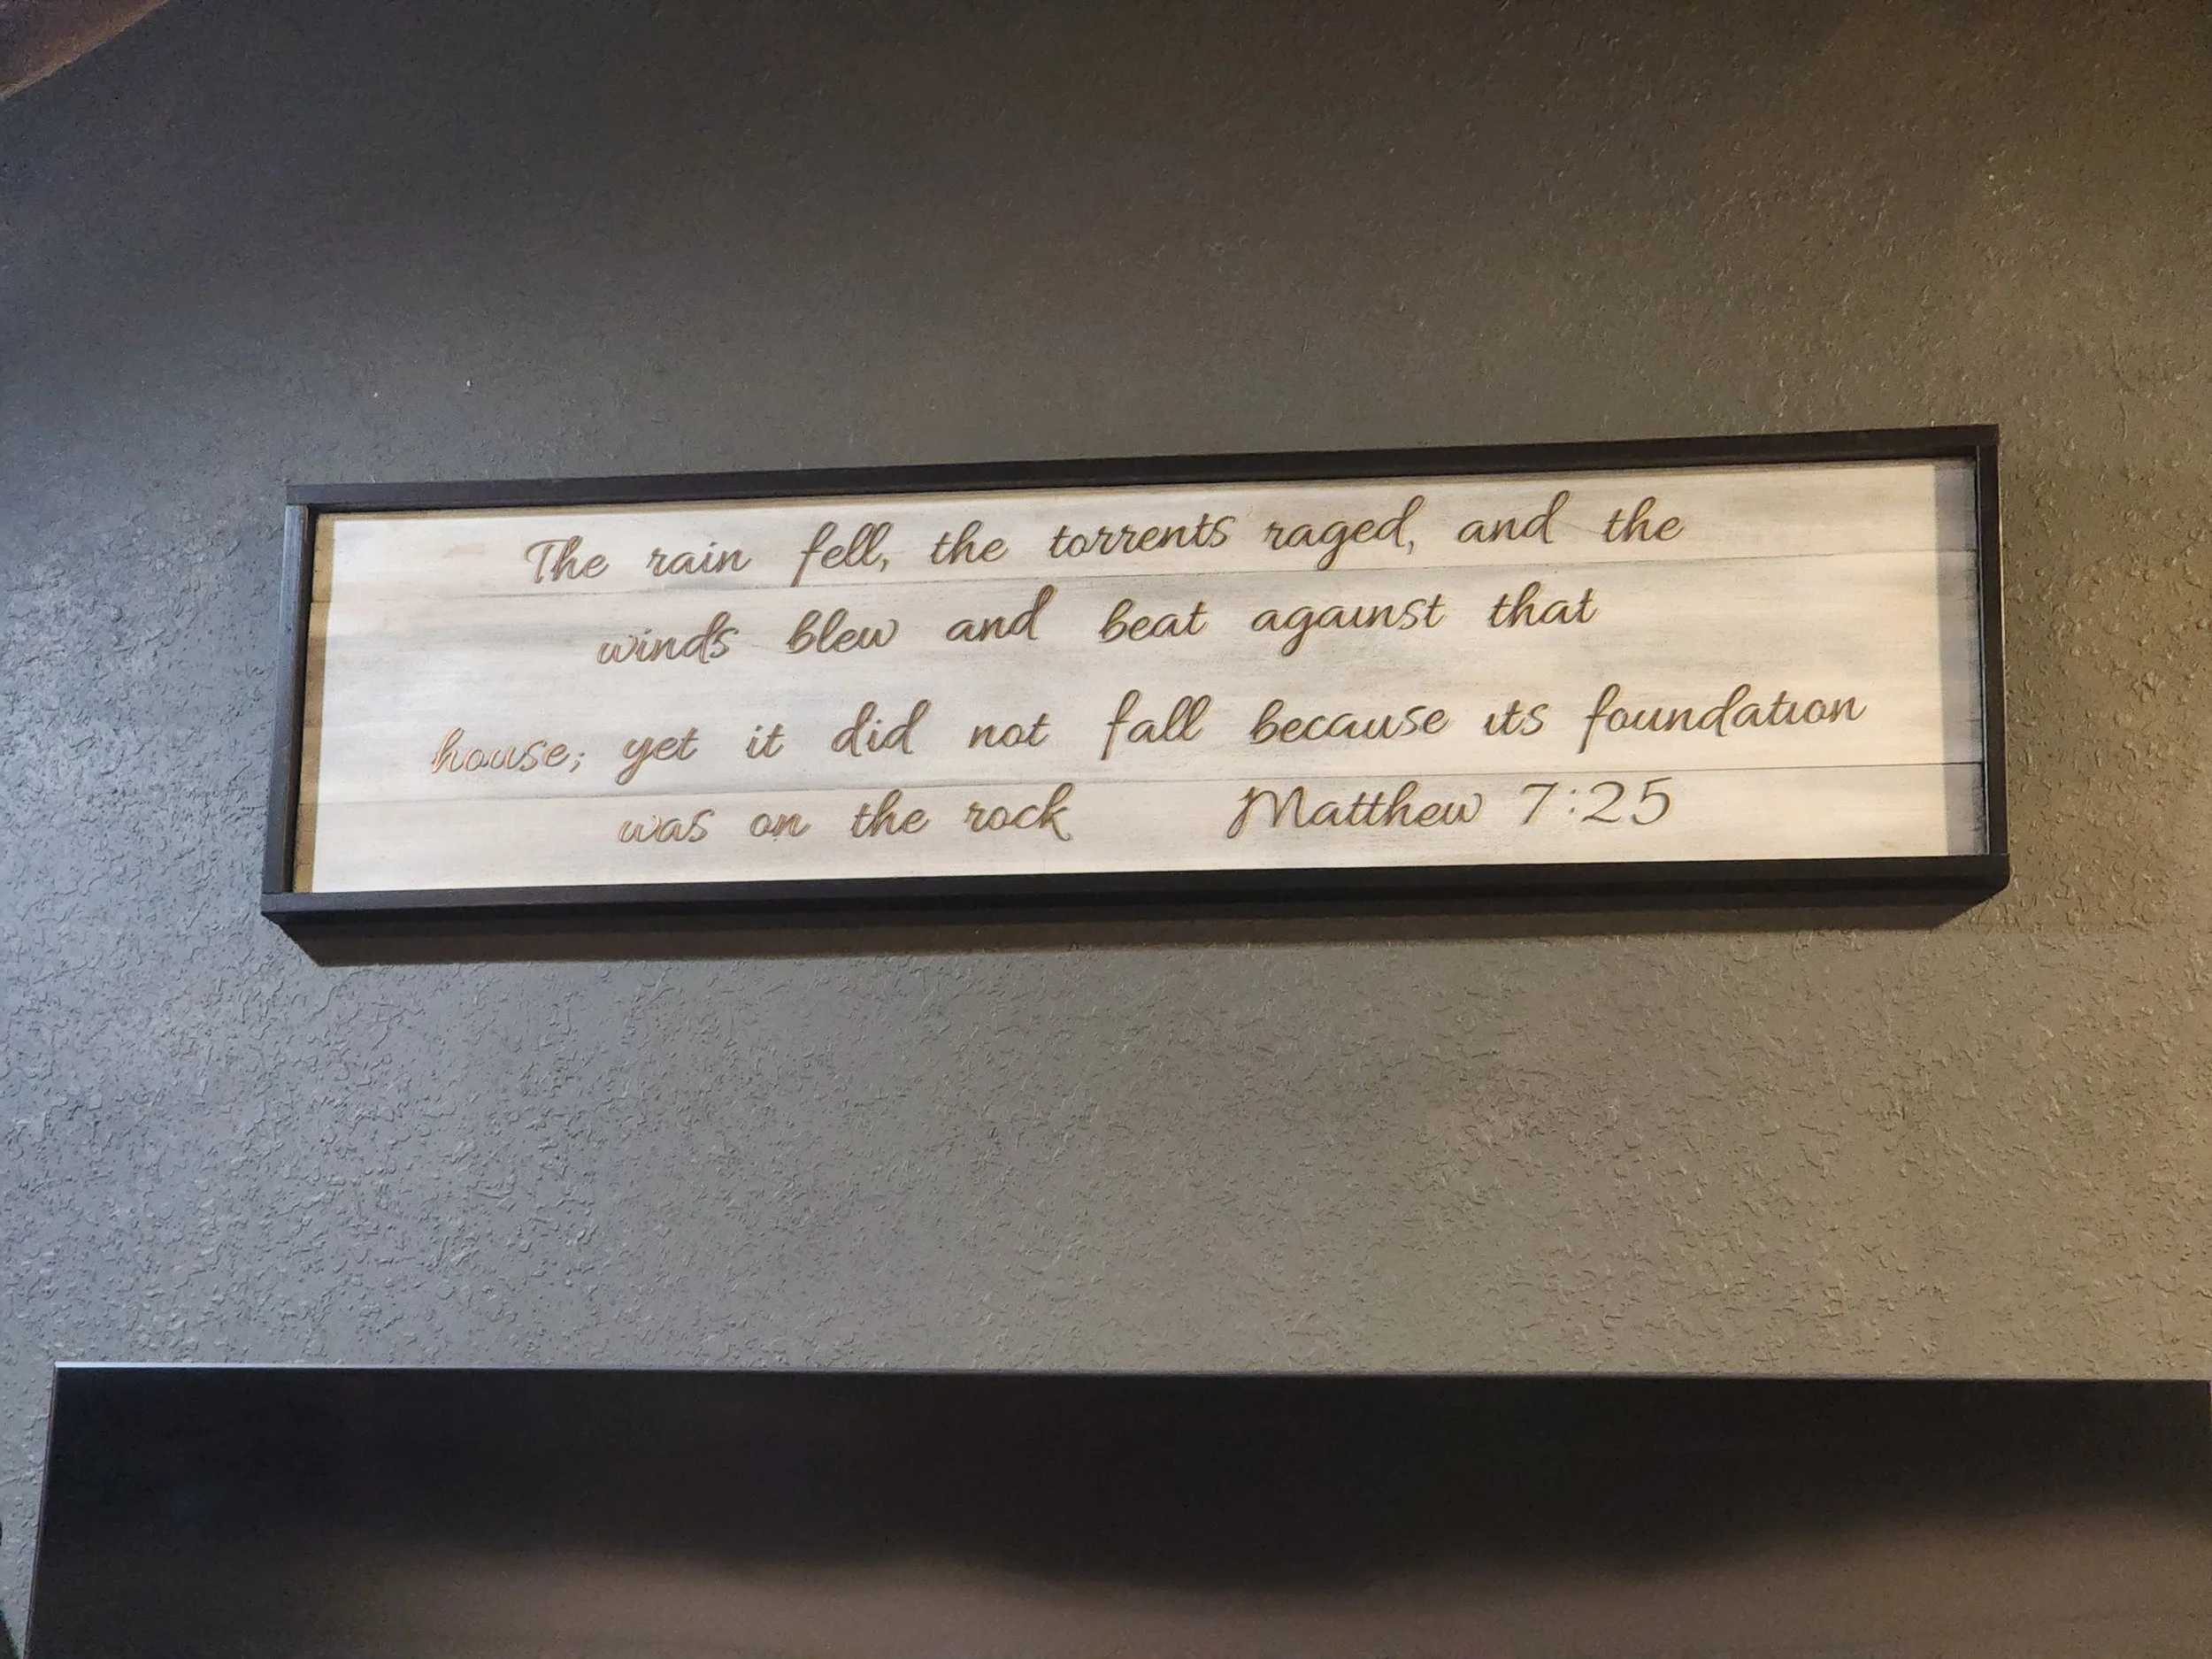 The rain fell, the torrents raged, and the
winds blew and beat against that
house; yet it did not fall because its foundation
was on the rock Matthew 7:25